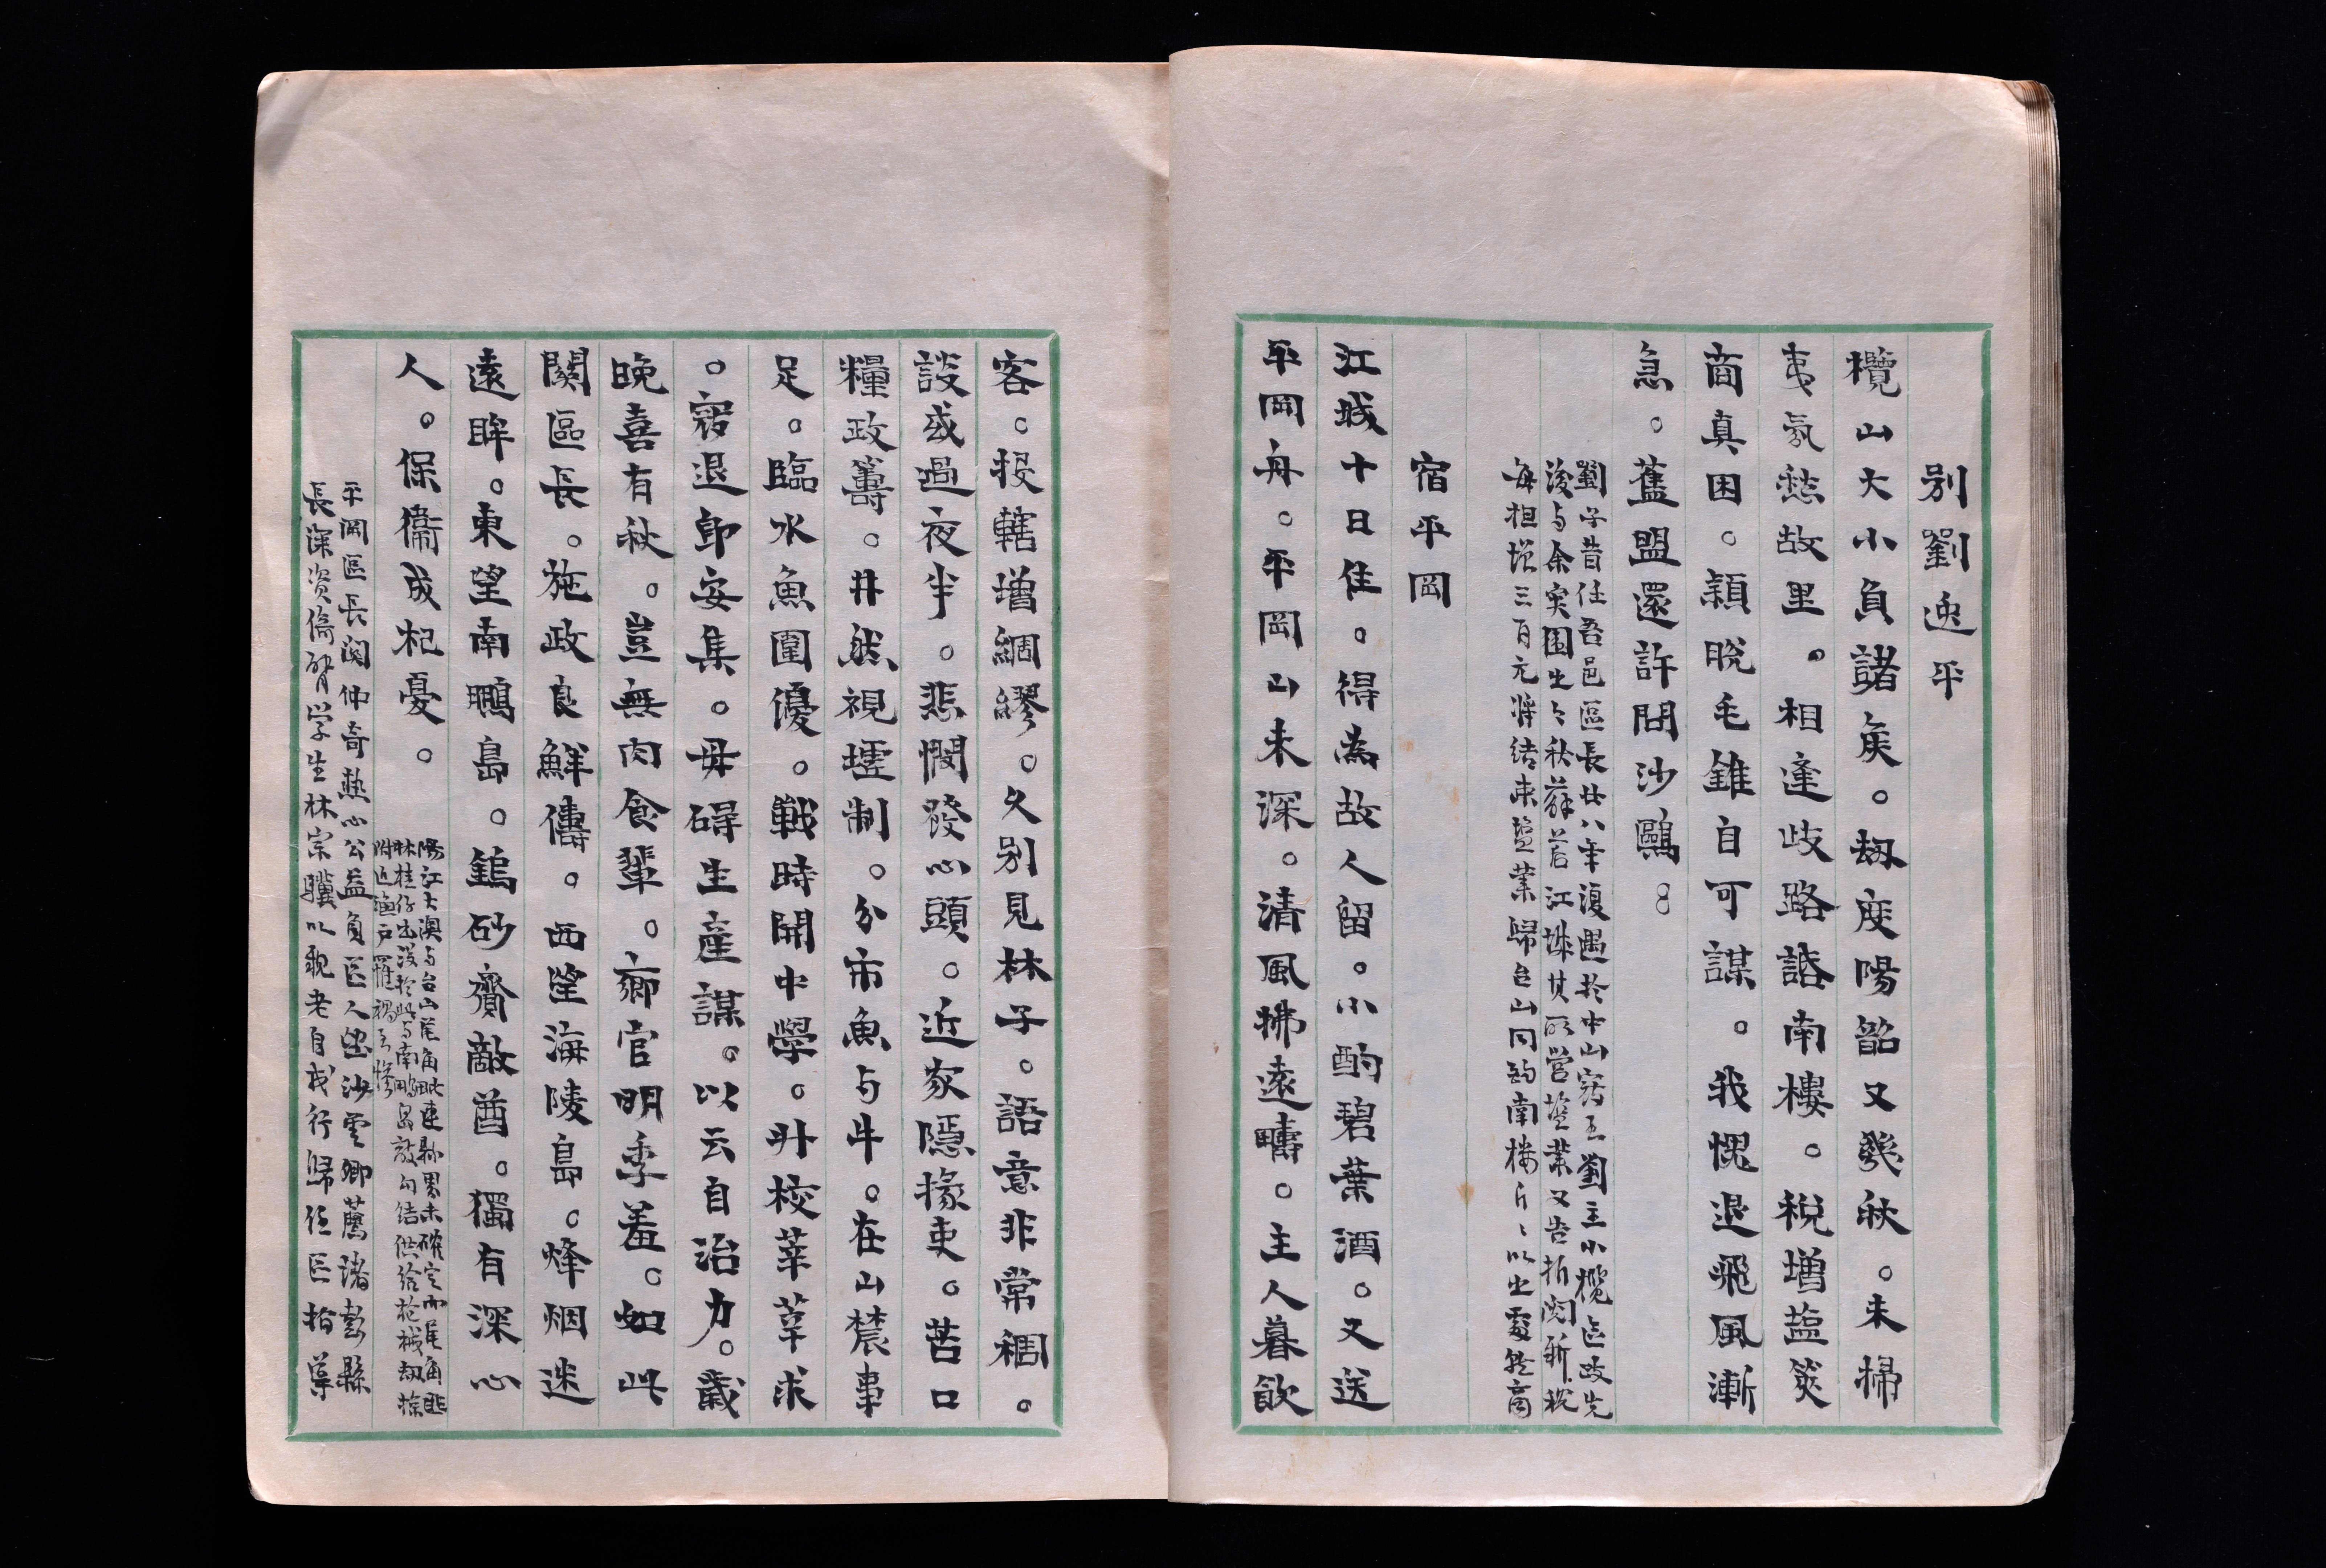 別劉逸平
欖山大小負諸矦。刼度陽韶又幾秋。未掃
夷氛愁故里。相逢歧路話南樓。稅增蓝筴
商真困。穎脫毛錐自可謀。我愧退飛風漸
急。舊盟還許問沙鷗。
劉子昔任吾邑區長廿八年復遇於中山窮五劉主小欖區政先
後与余突围出今秋薜若江城其所營盐業又告折閱新稅
每担增三百元將結束盐業歸台山同酌南楼斤斤以出處輕商
宿平岡
江城十日隹。得為故人留。小酌碧葉酒。又送
平岡舟。平岡山未深。清風拂遠疇。主人暮飲
客。投轄增綢繆。久别見林子。語意非常稠。
談或過夜半。悲憫發心頭。近家隱掾吏。苦口
糧政籌。井然視壥制。分市魚与牛。在山農事
足。臨水魚圍優。戰時開中學。升校莘莘求
。寇退即安集。毋碍生產謀。以云自治力。歲
晚喜有秋。豈無肉食輩。鄉官明季羞。如此
關區長。施政良鮮儔。西望海陵島。烽烟迷
遠眸。東望南鵬島。鎢砂齎敵酋。獨有深心
人。保衞成杞憂。
陽江大澳与台山尾角毗連縣界未確定而尾角匪
林桂仔出没於此与南鵬島敌勾结供给枪械刼掠
附近漁戶罹禍至惨
平岡區長關仲奇熱心公益負區人望沙雲卿薦諸彭縣
長深资倚臂学生林宗驥以親老自戎行歸任區指導